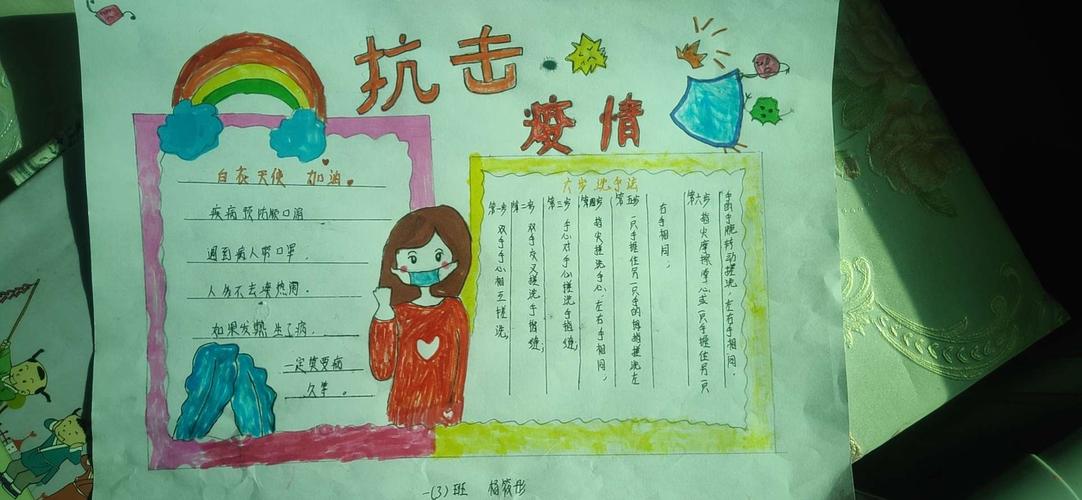 抗击
疫情
白衣天使 加油
疾病预防顺口溜
遇到病人带口罩.
人多不去凑热闹.
如果发热生了病.
一定要
。
六步洗手法
第一步 双手手心相互搓洗,
第二步 双手交叉搓洗手指缝;
第三步 手心对手心搓洗手指缝,
第四步 指尖搓洗手心,左右手相同,
第五步 一只手握住另一只手的拇指搓洗左
右手相同;
第六步 指尖摩擦掌心或一只手握住另一只
手的手腕转动搓洗,左右手相同.
一(3)班 杨筱彤